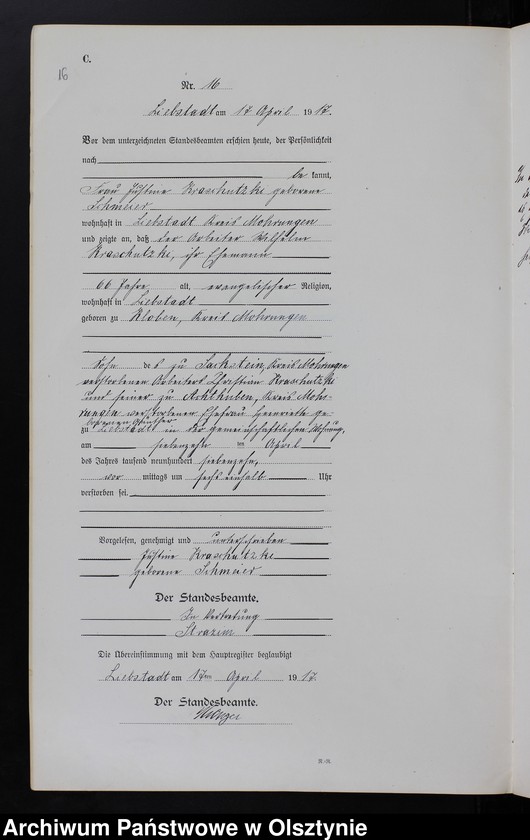 C.
16
Nr. 16
Liebstadt am 17 April 1917.
Vor dem unterzeichneten Standesbeamten erschien heute, der Persönlichkeit
nach
be kannt,
Frau Justine Kraschutzki geborene
Schmeier
wohnhaft in Liebstadt Kreis Mohrungen
und zeigte an, daß der Arbeiter Wilhelm
Kraschutzki, ihr Ehemann
66 Jahre alt, evangelischer Religion,
wohnhaft in Liebstadt
geboren zu Kloben, Kreis Mohrungen
Sohn des zu Sackstein, Kreis Mohrungen
verstorbenen Arbeiters Christian Kraschutzki
und seiner zu Achthuben, Kreis Moh-
rungen verstorbenen Ehefrau Henriette ge-
borenen Günther
zu Liebstadt in der gemeinschaftlichen Wohnung,
am siebenzehn im April
des Jahres tausend neunhundert siebenzehn,
vor mittags um sechs einhalb Uhr
verstorben sei.
Vorgelesen, genehmigt und unterschrieben
Justine Kraschutzki
geborene Schmeier
Der Standesbeamte.
In Vertretung
Strazim
Die Übereinstimmung mit dem Hauptregister beglaubigt
Liebstadt am 17ten April 1917.
Der Standesbeamte.
Archiwum Państwowe w Olsztynie